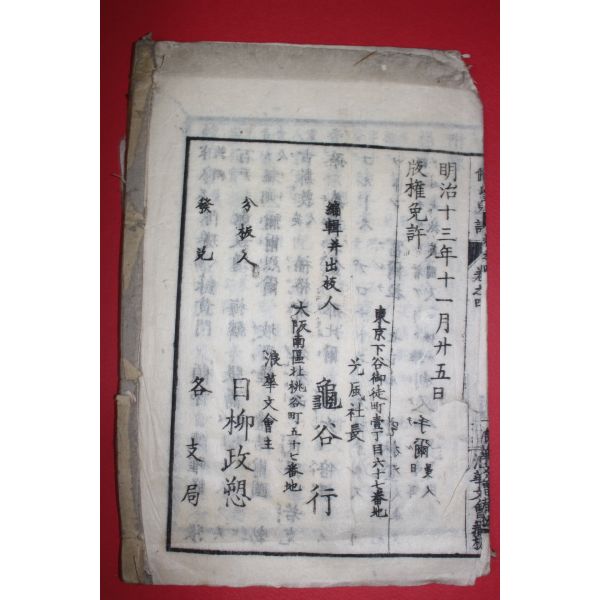 明治十三年十一月廿五日
版權免許
東京下谷御徒町壹丁目六十七番地
光風社長
編輯并出板人 龜谷行
大阪南區北桃谷町五十七番地
浪華文會主
分板人 日柳政愬
發兌 各支局
卷之四